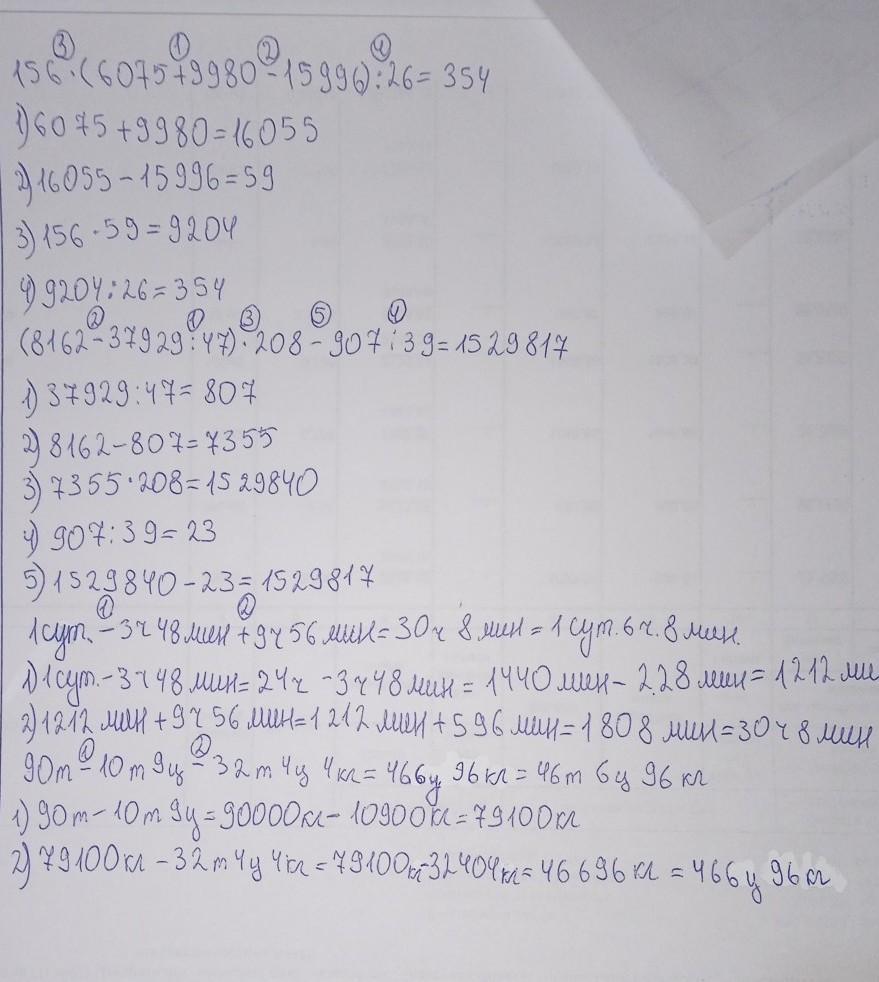 156·(6075+9980-15996):26=354
1)6075+9980=16055
2)16055-15996=59
3)156·59=9204
4)9204:26=354
(8162-37929:47)·208-907:39=1529817
1)37929:47=807
2)8162-807=7355
3)7355·208=1529840
4)907:39=23
5)1529840-23=1529817
1сут.-3ч48мин+9ч56мин=30ч 8мин=1сут.6ч.8мин.
1)1сут.-3ч48мин=24ч-3ч48мин=1440мин-228мин=1212ми
2)1212мин+9ч56мин=1212мин+596мин=1808мин=30ч8мин
90т-10т9ц-32т4ц4кг=466ц96кг=46т6ц96кг
1)90т-10т9ц=90000кг-10900кг=79100кг
2)79100кг-32т4ц4кг=79100кг-32404кг=46696кг=466ц96кг